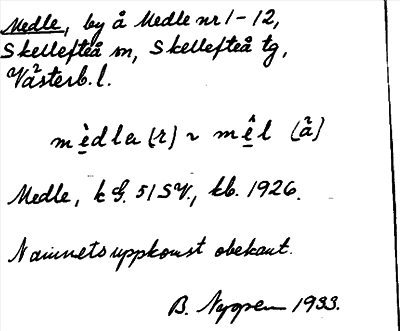 Medle, by å Medle nr 1-12,
Skellefteå sn, Skellefteå tg,
Västerb. l.
mèdla (r) ~ mêl (ã)
Medle, k G. 51SV., kb. 1926.
Namnets uppkomst obekant.
B. Nygren 1933.